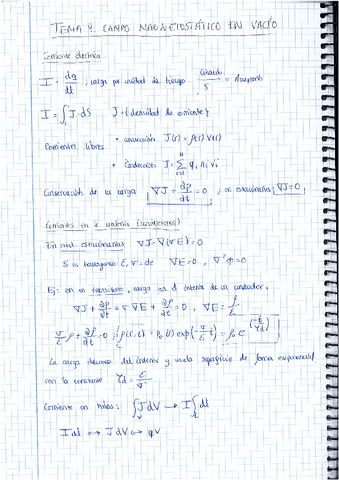 TEMA 4. CAMPO MAGNETOSTÁTICO EN VACÍO
Corriente eléctrica
I = dq/dt ; carga por unidad de tiempo Culombio/S = Amperio
I = ∫ J·dS J = {densidad de corriente}
Corrientes libres • convección J(r) = ρ(r) V(r)
• Conducción J = Σ qi ni vi
Conservación de la carga ∇J + ∂ρ/∂t = 0 ; en estacionaria ∇J = 0
Corrientes en la materia (conductores)
En cond. estacionarias ∇J = ∇(σE) = 0
Si es homogéneo ε, σ = cte ∇E = 0 , ∇²Φ = 0
Ej: en un transitorio, carga en el interior de un conductor.
∇J + ∂ρ/∂t = σ∇E + ∂ρ/∂t = 0 , ∇E = ρ/ε
σ/ε ρ + ∂ρ/∂t = 0 ; ρ(r,t) = ρ0(r) exp(-σ/ε t) = ρ0 e^(-t/τd)
La carga del interior superficie de forma exponencial
con la constante τd = ε/σ
Corriente en hilos: ∫ J dV → I ∫ dl
I dl ↔ J dV ↔ qv